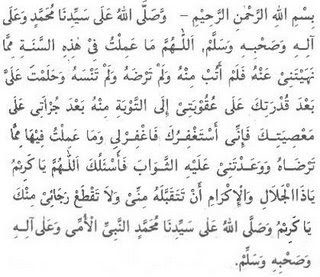 بِسْمِ اللهِ الرَّحْمٰنِ الرَّحِيْمِ – وَصَلَّى اللهُ عَلَى سَيِّدِنَا مُحَمَّدٍ وَعَلَى
آلِهِ وَصَحْبِهِ وَسَلَّمَ، اَللّٰهُمَّ مَا عَمِلْتُ فِى هٰذِهِ السَّنَةِ مِمَّا
نَهَيْتَنِى عَنْهُ فَلَمْ أَتُبْ مِنْهُ وَلَمْ تَرْضَهُ وَلَمْ تَنْسَهُ وَحَلِمْتَ عَلَىَّ
بَعْدَ قُدْرَتِكَ عَلَى عُقُوْبَتِىْ إِلَى التَّوْبَةِ مِنْهُ بَعْدَ جُرْأَتِى عَلَى
مَعْصِيَتِكَ فَإِنِّى أَسْتَغْفِرُكَ فَاغْفِرْلِى وَمَا عَمِلْتُ فِيْهَا مِمَّا
تَرْضَاهُ وَوَعَدْتَنِىْ عَلَيْهِ الثَّوَابَ فَأَسْئَلُكَ اَللّٰهُمَّ يَا كَرِيْمُ
يَاذَا الْجَلَالِ وَالْإِكْرَامِ أَنْ تَتَقَبَّلَهُ مِنِّىْ وَلَا تَقْطَعْ رَجَائِىْ مِنْكَ
يَا كَرِيْمُ وَصَلَّى اللهُ عَلَى سَيِّدِنَا مُحَمَّدٍ النَّبِيِّ الْأُمِّى وَعَلَى آلِهِ
وَصَحْبِهِ وَسَلِّمْ.